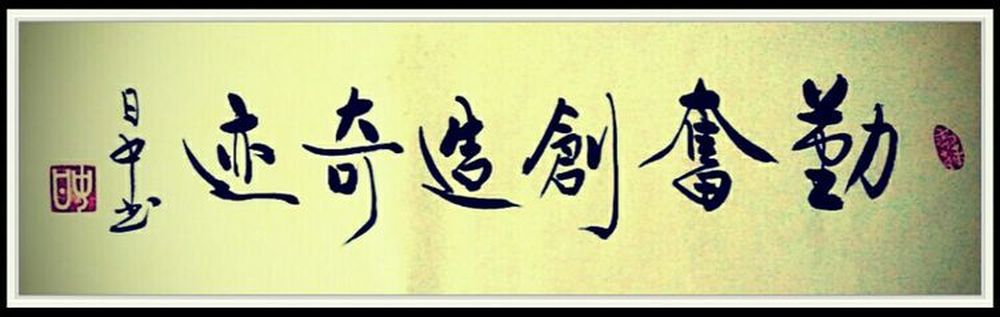 勤奮創造奇迹
日中书